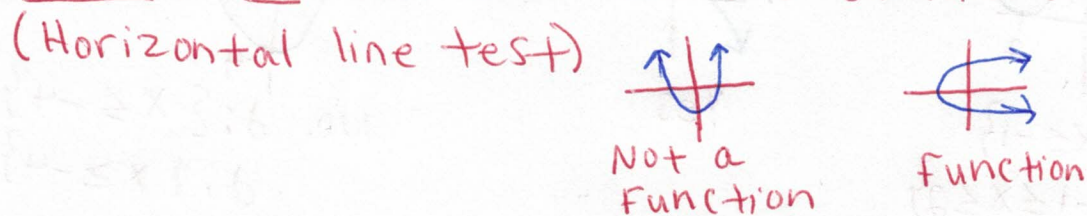 (Horizontal line test)
Not a
Function
Function